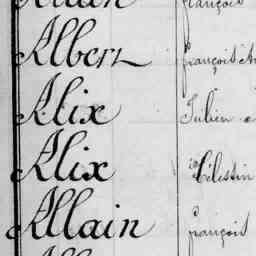 François
Albert François A
Alix Julien
Alix Célestin
Allain François